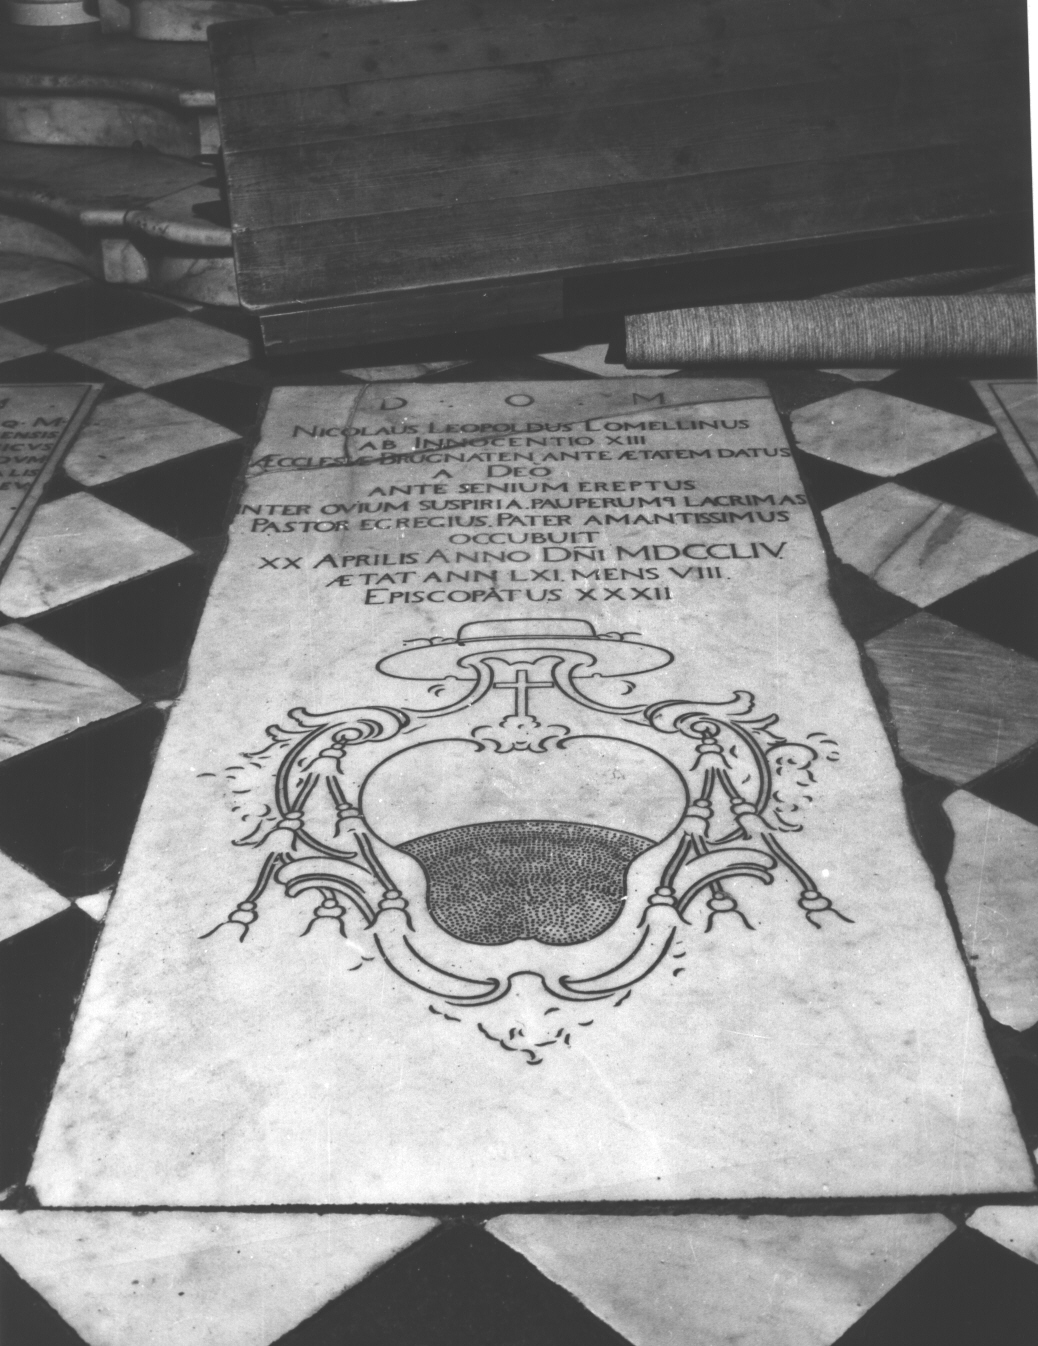 D . O . M
NICOLAUS LEOPOLDUS LOMELLINUS
AB INNOCENTIO XIII
ÆCCLESIÆ BRUGNATEN ANTE ÆTATEM DATUS
A DEO
ANTE SENIUM EREPTUS
INTER OVIUM SUSPIRIA. PAUPERUMQ LACRIMAS
PASTOR EGREGIUS. PATER AMANTISSIMUS
OCCUBUIT
XX APRILIS ANNO DÑI MDCCLIV.
ÆTAT ANN LXI. MENS VIII.
EPISCOPATUS XXXII
Q. M.
ENSIS
ICVS
OVM
LIS
EV